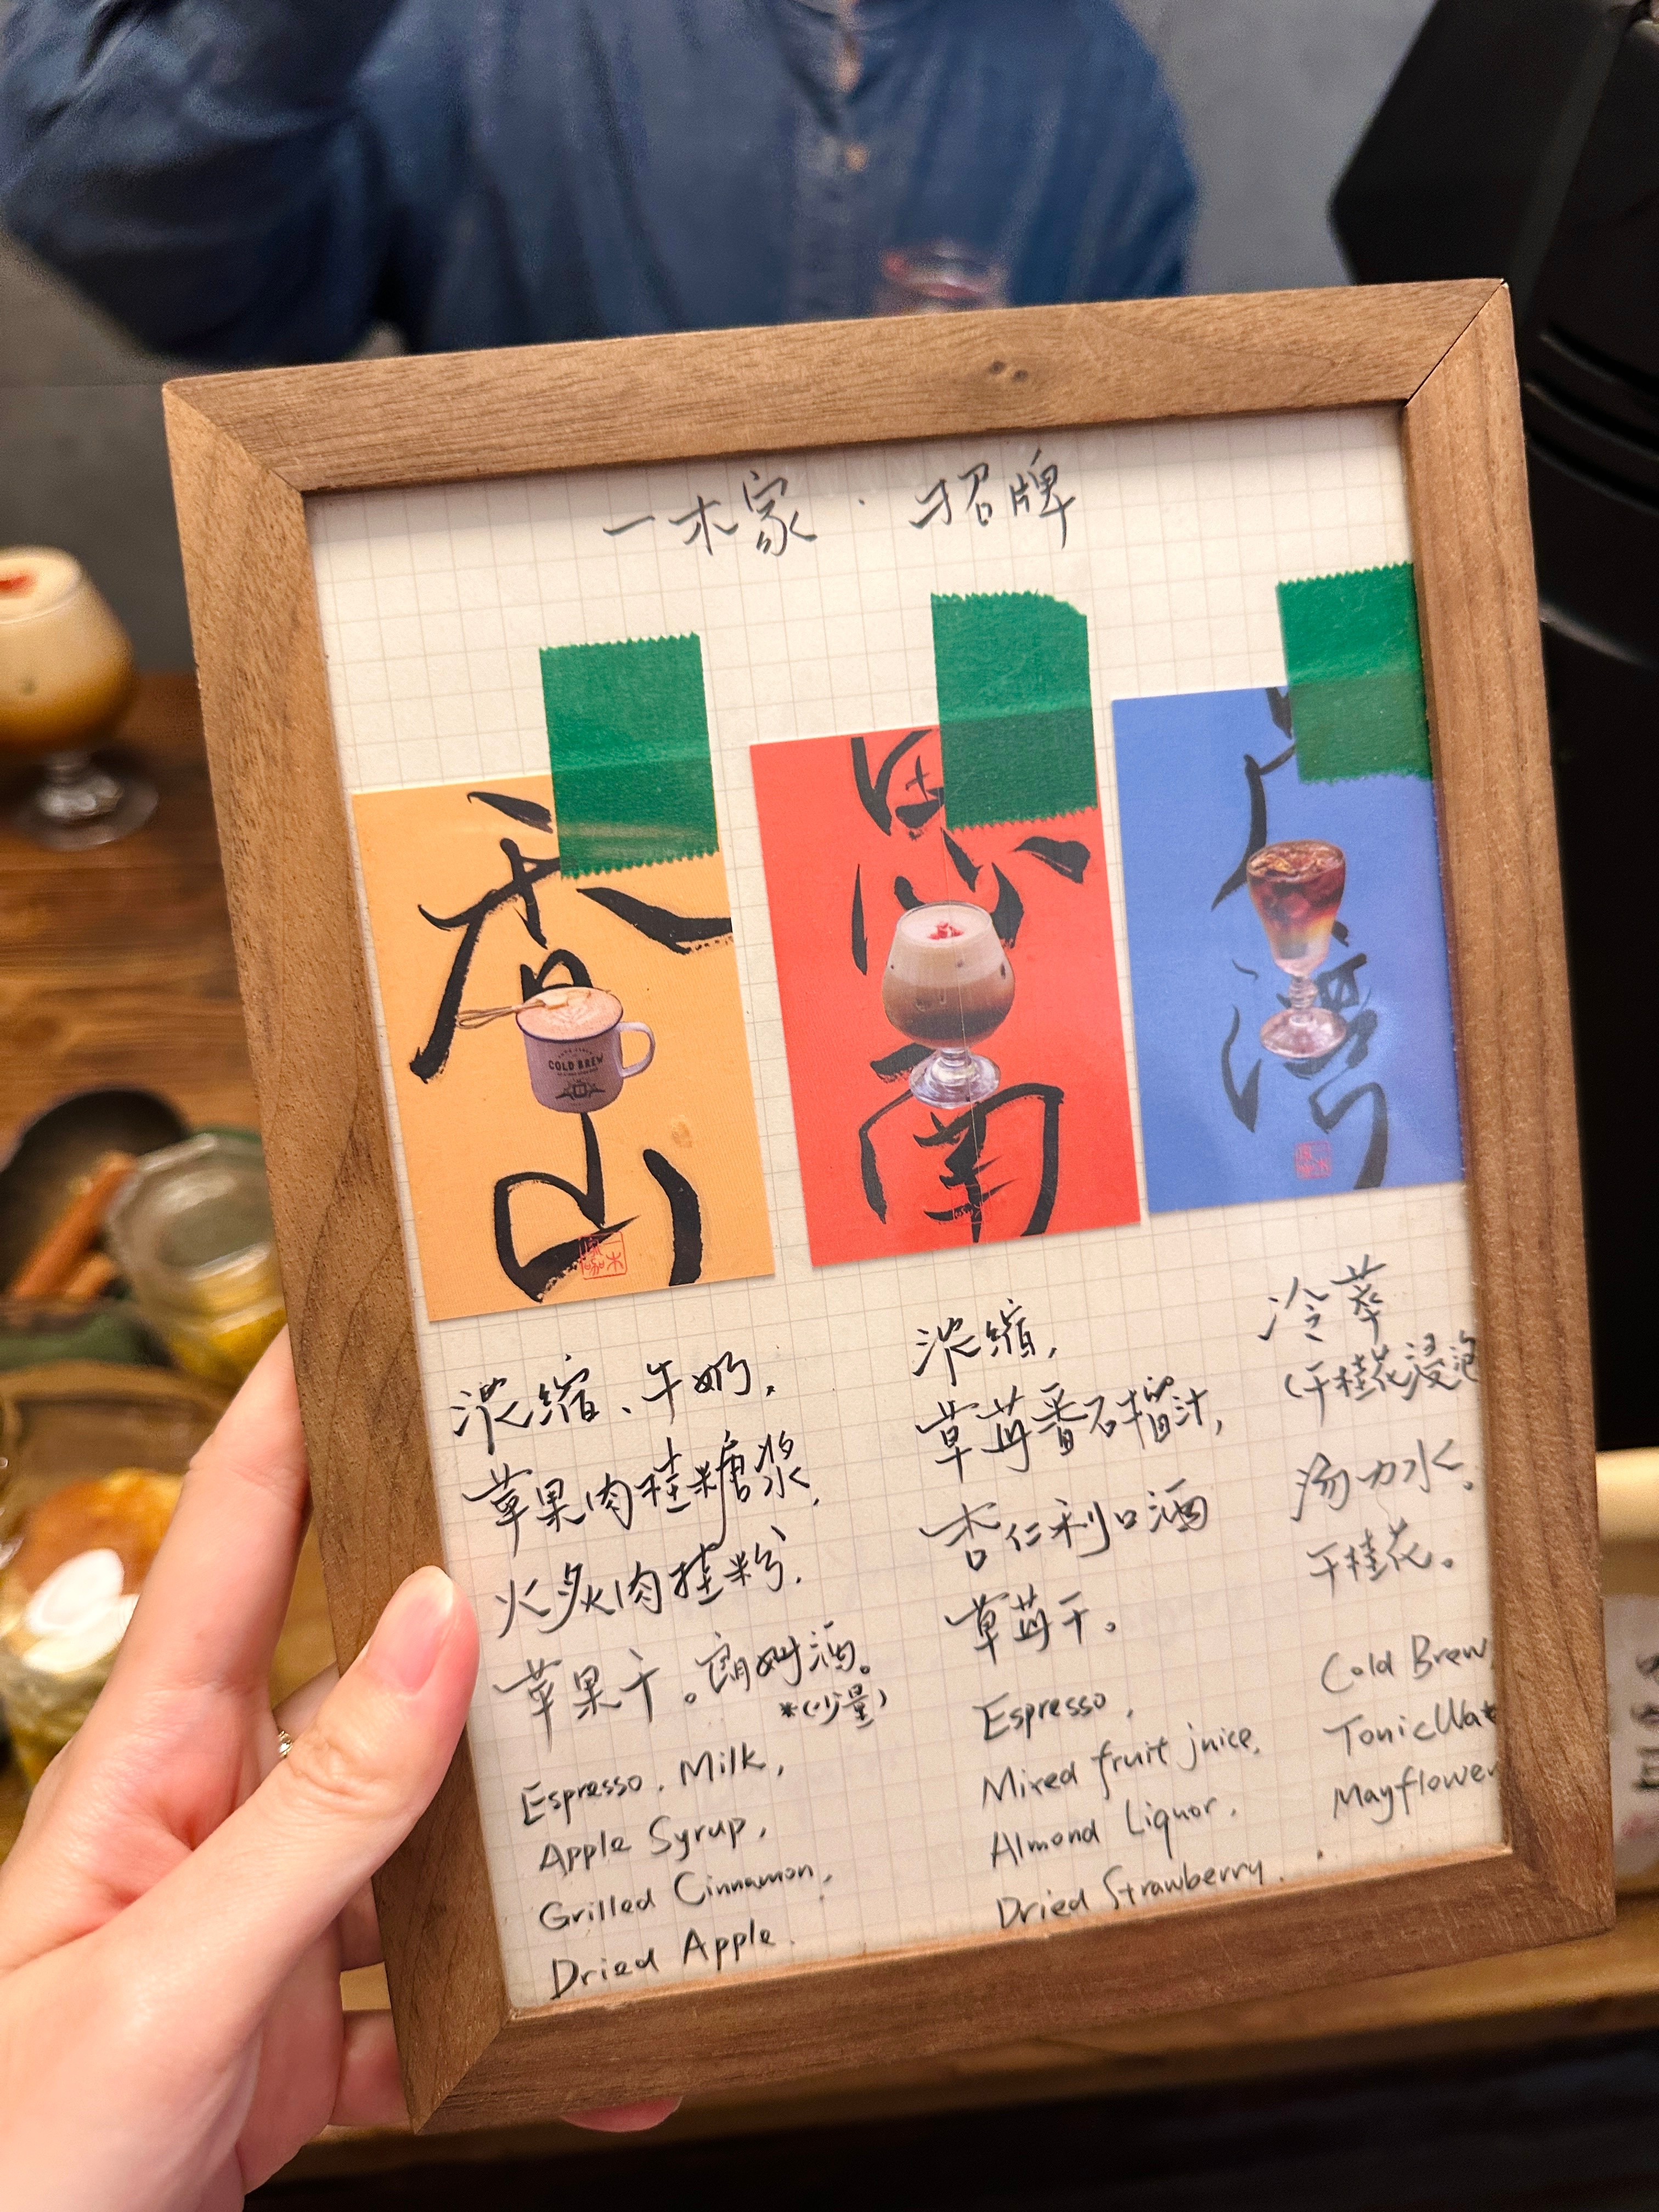 一木家 · 招牌
香山
COLD BREW
思南
湾
浓缩、牛奶,
苹果肉桂糖浆,
火炙肉桂粉,
苹果干。朗姆酒。
*(少量)
Espresso, Milk,
Apple Syrup,
Grilled Cinnamon,
Dried Apple.
浓缩,
草莓番石榴汁,
杏仁利口酒
草莓干。
Espresso,
Mixed fruit juice,
Almond Liquor,
Dried Strawberry.
冷萃
(干桂花浸泡
汤力水,
干桂花。
Cold Brew
TonicWat
Mayflower